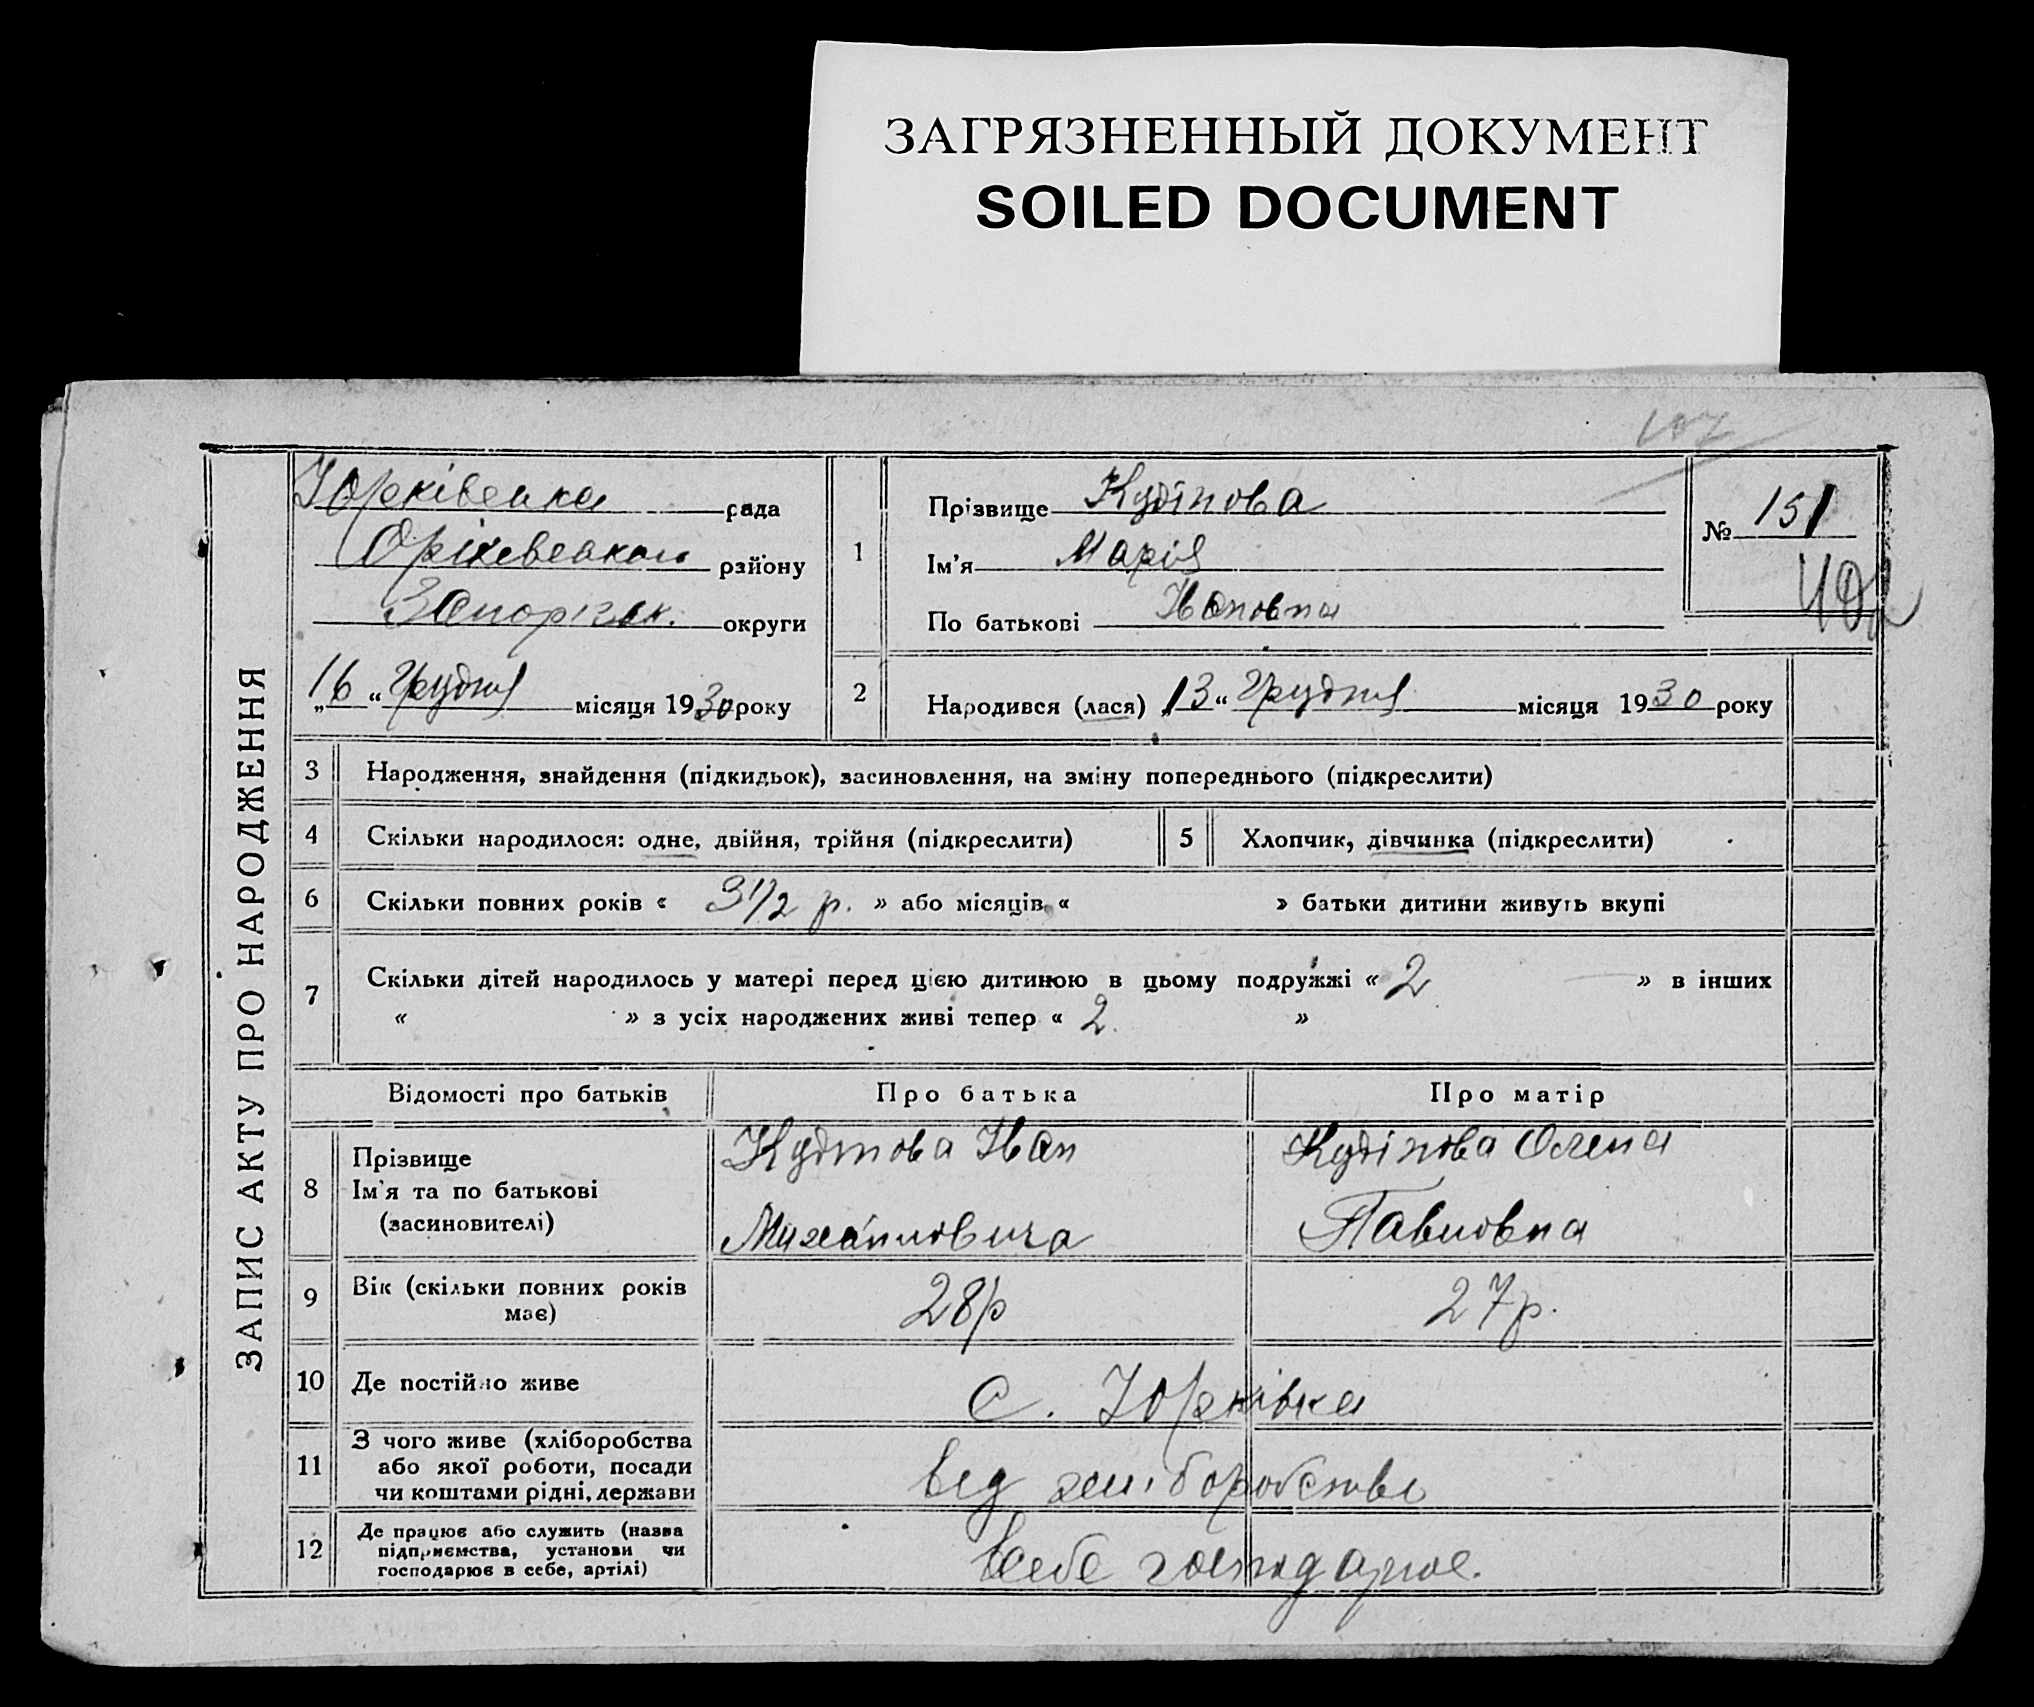 ЗАГРЯЗНЕННЫЙ ДОКУМЕНТ
SOILED DOCUMENT
ЗАПИС АКТУ ПРО НАРОДЖЕННЯ
Юрківська рада
Оріхівського району
Запорізьк. округи
„16“ грудня місяця 1930 року
1
Прізвище Кудінова
Ім'я Марія
По батькові Івановна
№ 151
2
Народився (лася) „13“ грудня місяця 1930 року
3 Народження, знайдення (підкидьок), засиновлення, на зміну попереднього (підкреслити)
4 Скільки народилося: одне, двійня, трійня (підкреслити) 5 Хлопчик, дівчинка (підкреслити)
6 Скільки повних років « 3 1/2 р. » або місяців « » батьки дитини живуть вкупі
7 Скільки дітей народилось у матері перед цією дитиною в цьому подружжі « 2 » в інших
« » з усіх народжених живі тепер « 2 »
Відомості про батьків Про батька Про матір
8 Прізвище
Ім'я та по батькові
(засиновителі)
Кудінова Іван
Михайловича
Кудінова Олена
Павловна
9 Вік (скільки повних років
має)
28 р 27 р.
10 Де постійно живе с. Юрківка
11 З чого живе (хліборобства
або якої роботи, посади
чи коштами рідні, держави
від хліборобства
12 Де працює або служить (назва
підприємства, установи чи
господарює в себе, артілі)
в себе господарює.